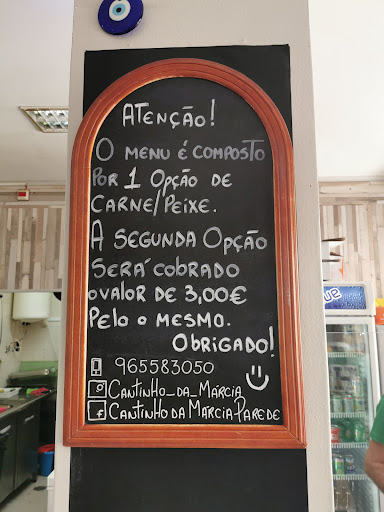 Atenção!
O menu é composto
por 1 opção de
carne/peixe.
A segunda opção
será cobrado
o valor de 3,00€
pelo o mesmo.
Obrigado!
965583050
Cantinho_da_Márcia
Cantinho da Márcia-Parede